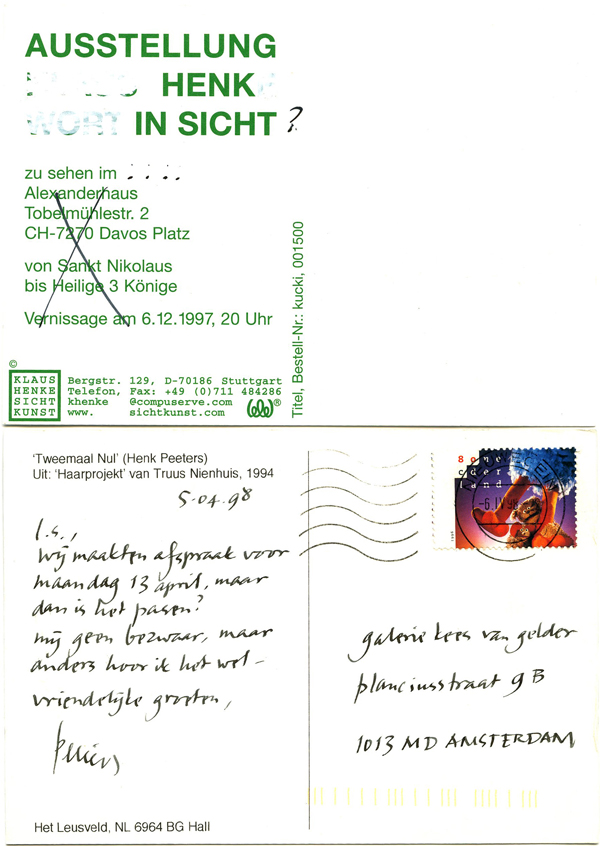 AUSSTELLUNG
KLAUS HENK
WORT IN SICHT?
zu sehen im
Alexanderhaus
Tobelmühlestr. 2
CH-7270 Davos Platz
von Sankt Nikolaus
bis Heilige 3 Könige
Vernissage am 6.12.1997, 20 Uhr
Titel, Bestell-Nr.: kucki, 001500
©
KLAUS
HENKE
SICHT
KUNST
Bergstr. 129, D-70186 Stuttgart
Telefon, Fax: +49 (0)711 484286
khenke @compuserve.com
www. sichtkunst.com ®
'Tweemaal Nul' (Henk Peeters)
Uit: 'Haarprojekt' van Truus Nienhuis, 1994
5.04.98
l.s.,
wij maakten afspraak voor
maandag 13 april, maar
dan is het pasen?
mij geen bezwaar, maar
anders hoor ik het wel –
vriendelijke groeten,
peeters
Het Leusveld, NL 6964 BG Hall
80 ne
der
land
NIEUWEGEIN
-6.IV.98
galerie kees van gelder
planciusstraat 9B
1013 MD AMSTERDAM